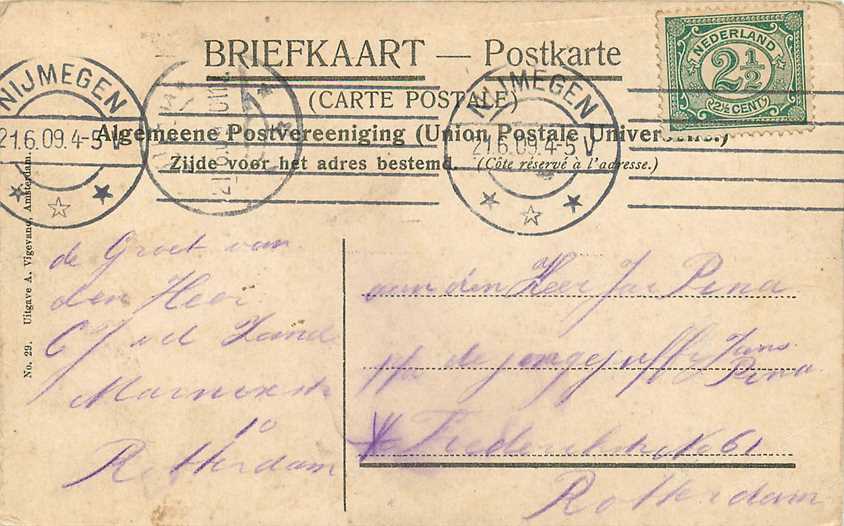 BRIEFKAART — Postkarte
(CARTE POSTALE)
Algemeene Postvereeniging (Union Postale Universelle.)
Zijde voor het adres bestemd. (Côte réservé à l'adresse.)
NIJMEGEN
21.6.09.4-5 V
NIJMEGEN
21.6.09.4-5 V
NEDERLAND
2½
2½ CENT
No. 29. Uitgave A. Vigevano, Amsterdam.
de Groet van
den Heer
Zand
10
Rotterdam
aan den Heer Pina
de
Pina
No 61
Rotterdam